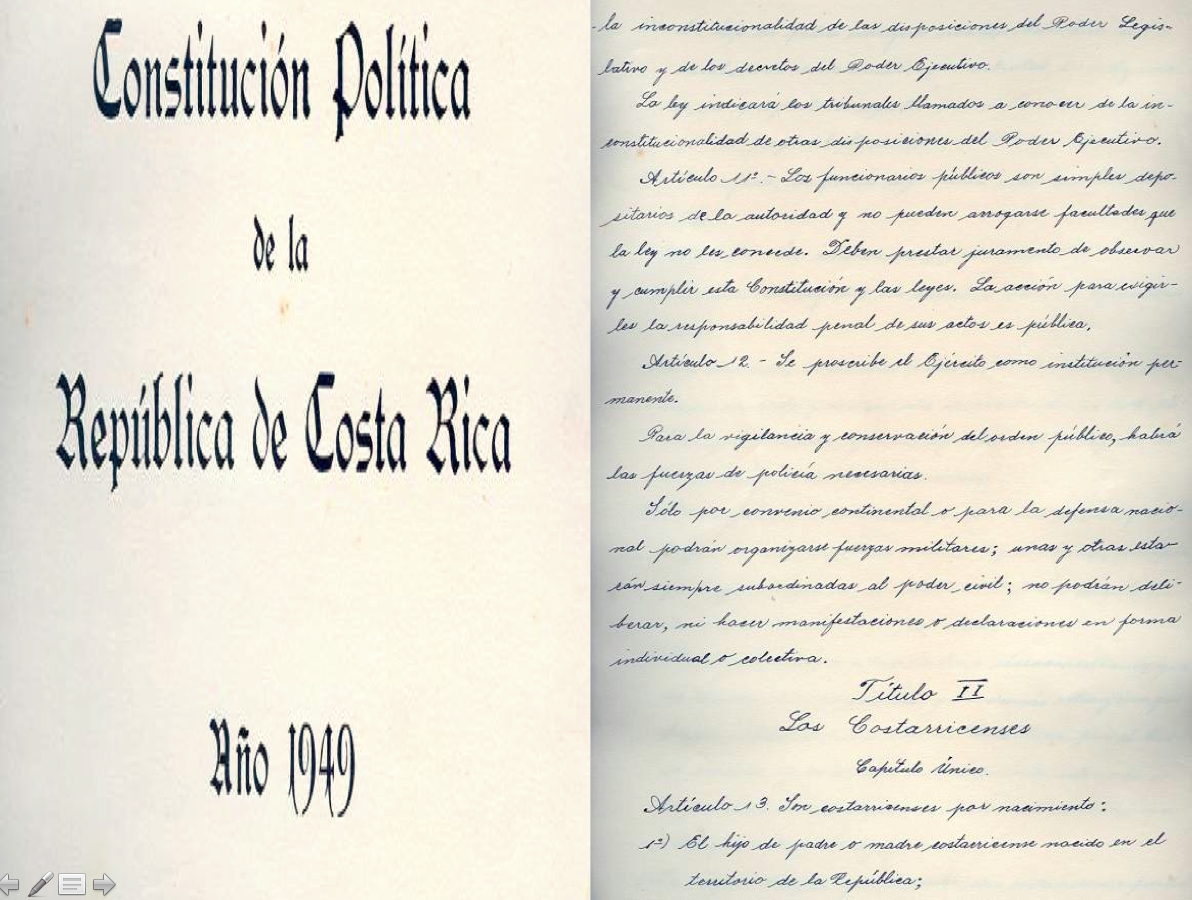 Constitución Política
de la
República de Costa Rica
Año 1949
la inconstitucionalidad de las disposiciones del Poder Legis-
lativo y de los decretos del Poder Ejecutivo.
La ley indicará los tribunales llamados a conocer de la in-
constitucionalidad de otras disposiciones del Poder Ejecutivo.
Artículo 11º.- Los funcionarios públicos son simples depo-
sitarios de la autoridad y no pueden arrogarse facultades que
la ley no les concede. Deben prestar juramento de observar
y cumplir esta Constitución y las leyes. La acción para exigir-
les la responsabilidad penal de sus actos es pública.
Artículo 12.- Se proscribe el Ejército como institución per-
manente.
Para la vigilancia y conservación del orden público, habrá
las fuerzas de policía necesarias.
Sólo por convenio continental o para la defensa nacio-
nal podrán organizarse fuerzas militares; unas y otras esta-
rán siempre subordinadas al poder civil; no podrán deli-
berar, ni hacer manifestaciones o declaraciones en forma
individual o colectiva.
Título II
Los Costarricenses
Capítulo Único.
Artículo 13. Son costarricenses por nacimiento:
1º) El hijo de padre o madre costarricense nacido en el
territorio de la República;